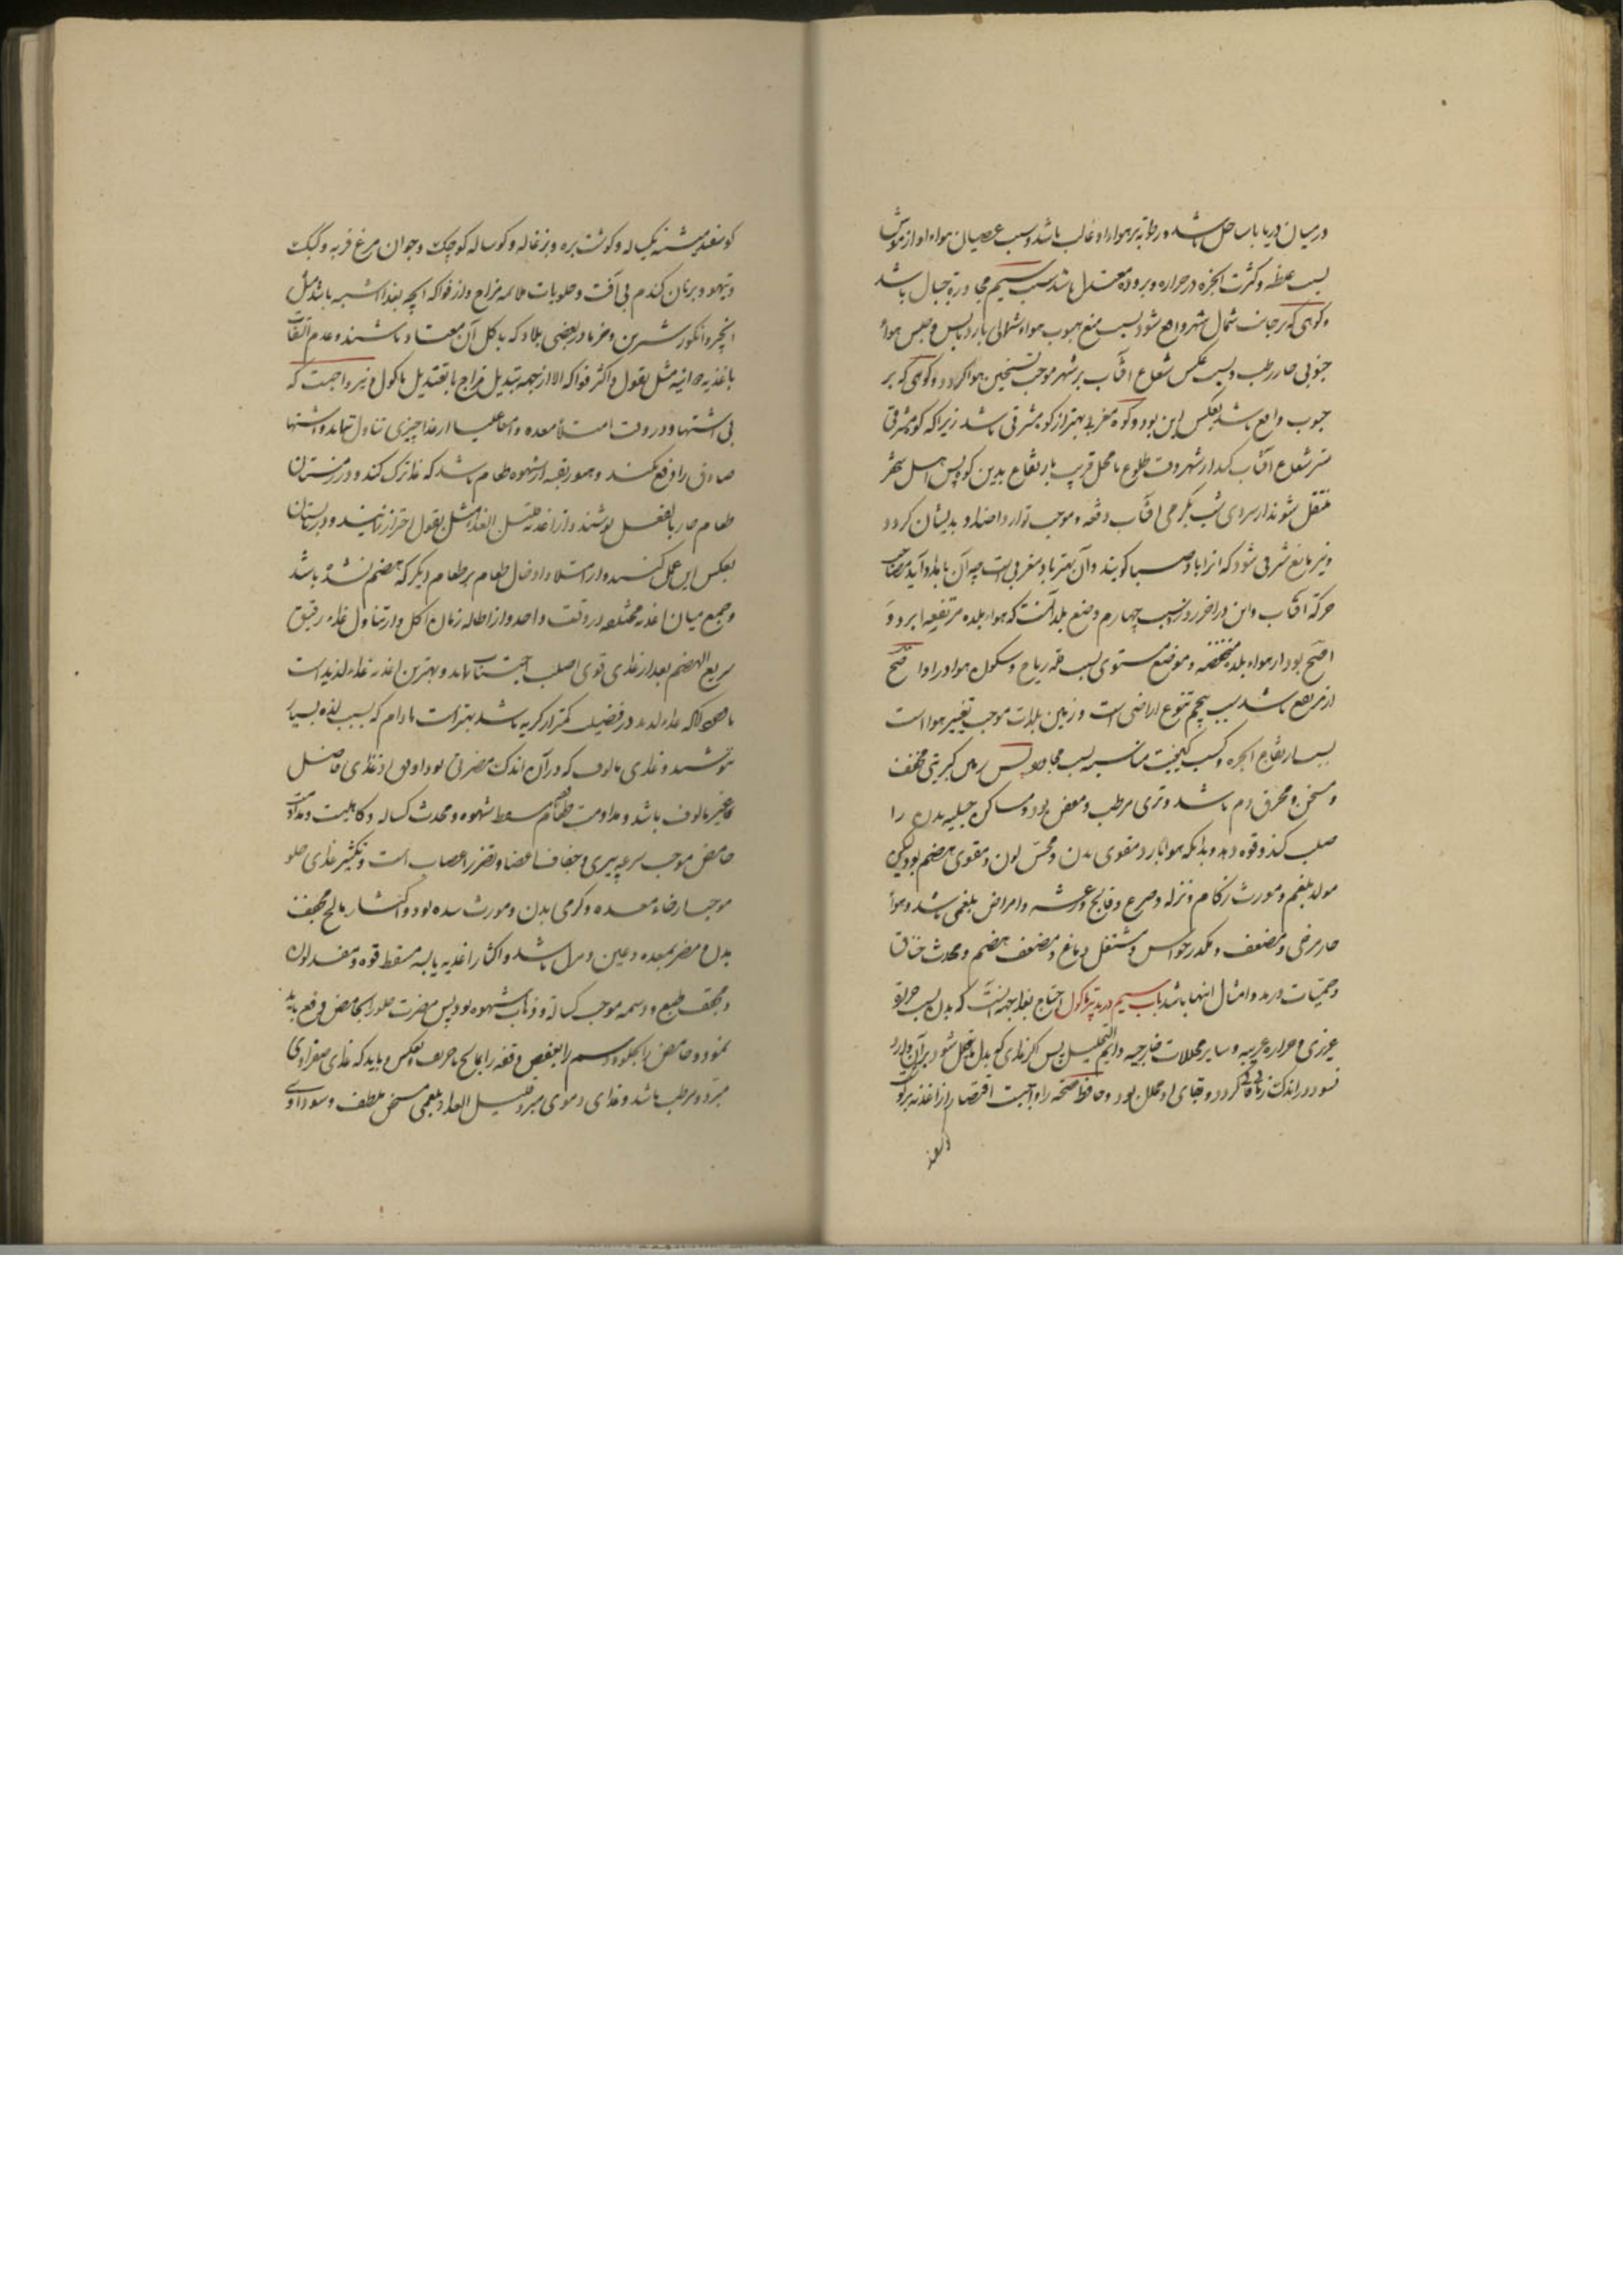 در میان دریا یا ساحل باشد و رطوبة بر هواء او غالب باشد و سبب عصیان هواء او از
بسبب غلظ و کثرت ابخره در حراره و بروده معتدل باشد سبب سیم مجاورة جبال باشد
و کوهی که بر جانب شمال شهر واقع شود بسبب منع هبوب هواء شمالی بارد یابس و حبس هواء
جنوبی حار رطب و بسبب عکس شعاع آفتاب بر شهر موجب تسخین هوا گردد و کوهی که بر
جنوب واقع باشد بعکس این بود و کوه مغربی بهتر از کوه مشرقی باشد زیرا که کوه مشرقی
ستر شعاع آفتاب کند از شهر وقت طلوع تا محل قریب بارتفاع بدین کوه پس اهل شهر
منتقل شوند از سردی شب بگرمی آفتاب دفعة و موجب توارد اضداد بدیشان گردد
و نیز مانع شرقی شود که آنرا باد صبا گویند و آن بهتر باد مغربی است چه آن بامداد آید مصاحب
حرکة آفتاب و این در آخر روز سبب چهارم وضع بلد آنست که هواء بلده مرتفعه ابرد و
اصح بود از هواء بلد منخفضه و موضع مستوی بسبب قلة ریاح و سکون هوا در او اصح
از مرتفع باشد سبب پنجم تنوع اراضی است و زمین بلدات موجب تغییر هوا است
بسبب ارتفاع ابخره و کسب کیفیت مناسبه بسبب مجاورة پس زمین کبریتی مجفف
و مسخن و محرق دم باشد و تری مرطب و معفن بود و مساکن جبلیه بدن را
صلب کند و قوه دهد و بدانکه هواء بارد مقوی بدن و محسن لون و مقوی هضم بود لیکن
مولد بلغم و مورث زکام و نزله و صرع و فالج و رعشه و امراض بلغمی باشد و هواء
حار مرخی و مضعف و مکدر حواس و مثقل دماغ و مضعف هضم و محدث خناق
و حمیات و رمد و امثال اینها باشد باب سیم در تدبیر ماکول احتیاج بغذا بجهة آنست که بدن بسبب حرارة
غریزی و حراره غریبه و سایر محللات خارجیه دایم التحلیل پس اگر غذای که بدل ما یتحلل شود بر آن وارد
نشود در اندک زمانی فانی گردد و بقای او محال بود و حافظ صحة را واجبست اقتصار از اغذیه بر گوشت
گوسفند میشینه یکساله و گوشت بره و بزغاله و گوساله کوچک و جوان مرغ فربه و کبک
و تیهو و بر نان گندم بی آفت و حلویات ملایمه مزاج و از فواکه آنچه بغذا اشبه باشد مثل
انجیر و انگور شیرین و خرما در بعضی بلاد که باکل آن معتاد باشند و عدم التفات
باغذیه دوائیه مثل بقول و اکثر فواکه الا از جهة تبدیل مزاج یا تعدیل ماکول و نیز واجبست که
بی اشتها و در وقت امتلاء معده و امعاء علیا از غذا چیزی تناول ننماید و اشتهاء
صادق را دفع نکند و هنوز بقیه از شهوه طعام باشد که غذا ترک کند و در زمستان
طعام حار بالفعل نوشند و از اغذیه قلیل الغذاء مثل بقول احتراز نمایند و در تابستان
بعکس این عمل کنند و از امتلاء و ادخال طعام بر طعام دیگر که هضم نشده باشد
و جمع میان اغذیه مختلفه در وقت واحد و از اطاله زمان اکل و از تناول غذاء رقیق
سریع الهضم بعد از غذای قوی صلب اجتناب نماید و بهترین اغذیه غذاء لذیذ است
غذاء لذیذ در فضیلت کمتر از کریه باشد بهتر است مادام که بسبب لذه بسیار
نوشند و غذای مالوف که در آن اندک مضرتی بود اوفق از غذای فاضل
غیر مالوف باشد و مداومت طعام مسقط شهوه و محدث کساله و کاهلیت و مداومت
حامض موجب سرعة پیری و جفاف اعضا و تضرر اعصاب است و تکثیر غذای حلو
موجب ارخاء معده و گرمی بدن و مورث سده بود و اکثار مالح مجفف
بدن و مضر بمعده و عین باشد و اکثار اغذیه یابسه مسقط قوه و مفسد لون
و مجفف طبع و دسمه موجب کسالة و ذهاب شهوه بود پس مضرت حلو را بحامض دفع باید
نمود و حامض را بحلو و دسم را بعفص و تفه را بمالح یا حریف و بعکس و باید که غذای صفراوی
مبرد و مرطب باشد و غذای دموی مبرد قلیل الغذاء و بلغمی مسخن ملطف و سوداوی